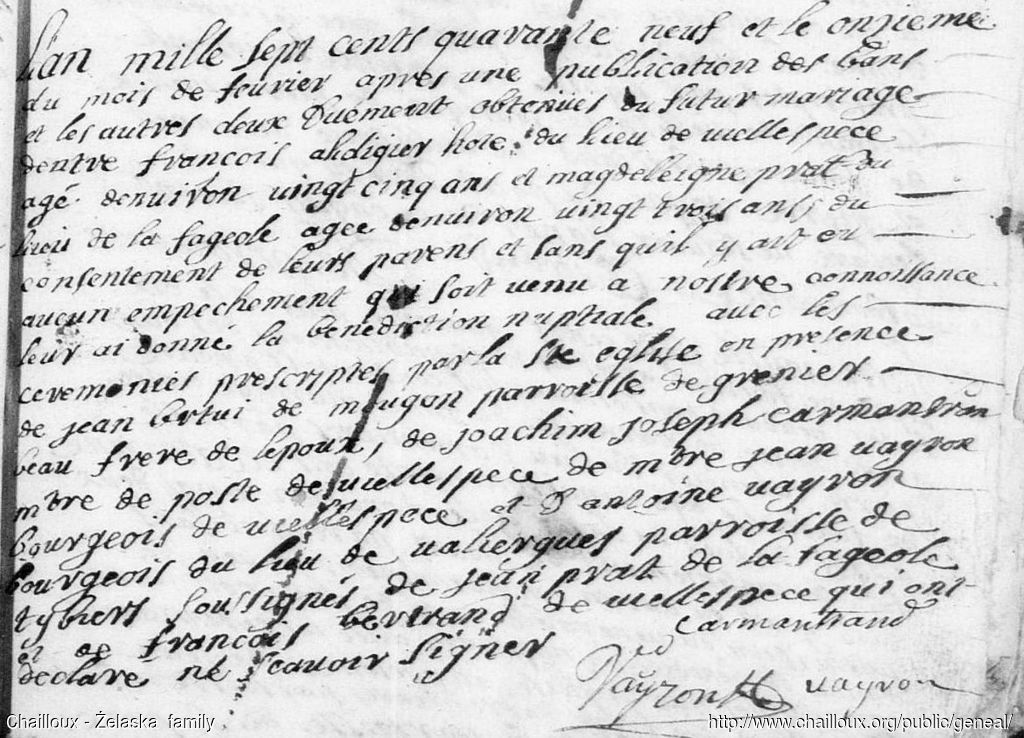 L'an mille sept cents quarante neuf et le onzieme
du mois de fevrier apres une publication des bans
et les autres deux Duement obtenues du futur mariage
dentre francois aldigier hote du lieu de viellespece
agé denviron vingt cinq ans et magdeleigne prat du
lieu de la fageole agee denviron vingt trois ans du
consentement de leurs parens et sans quil y ait eu
aucun empechement qui soit venu a nostre connoissance
leur ai donné la benediction nuptiale avec les
ceremonies prescryptes par la Ste eglise en presence
de jean de mougon parroisse de grenier
beau frere de lepoux, de joachim joseph carmantran
mtre de poste de viellespece de mtre jean vayron
bourgeois de viellespece et D'antoine vayron
bourgeois du lieu de valiergues parroisse de
tybiers soussignés de jean prat de la fageole
et de francois bertrand de viellespece qui ont
declaré ne scavoir signer
carmantrand
Vayron
vayron
Chailloux - Żelaska family
http://www.chailloux.org/public/geneal/